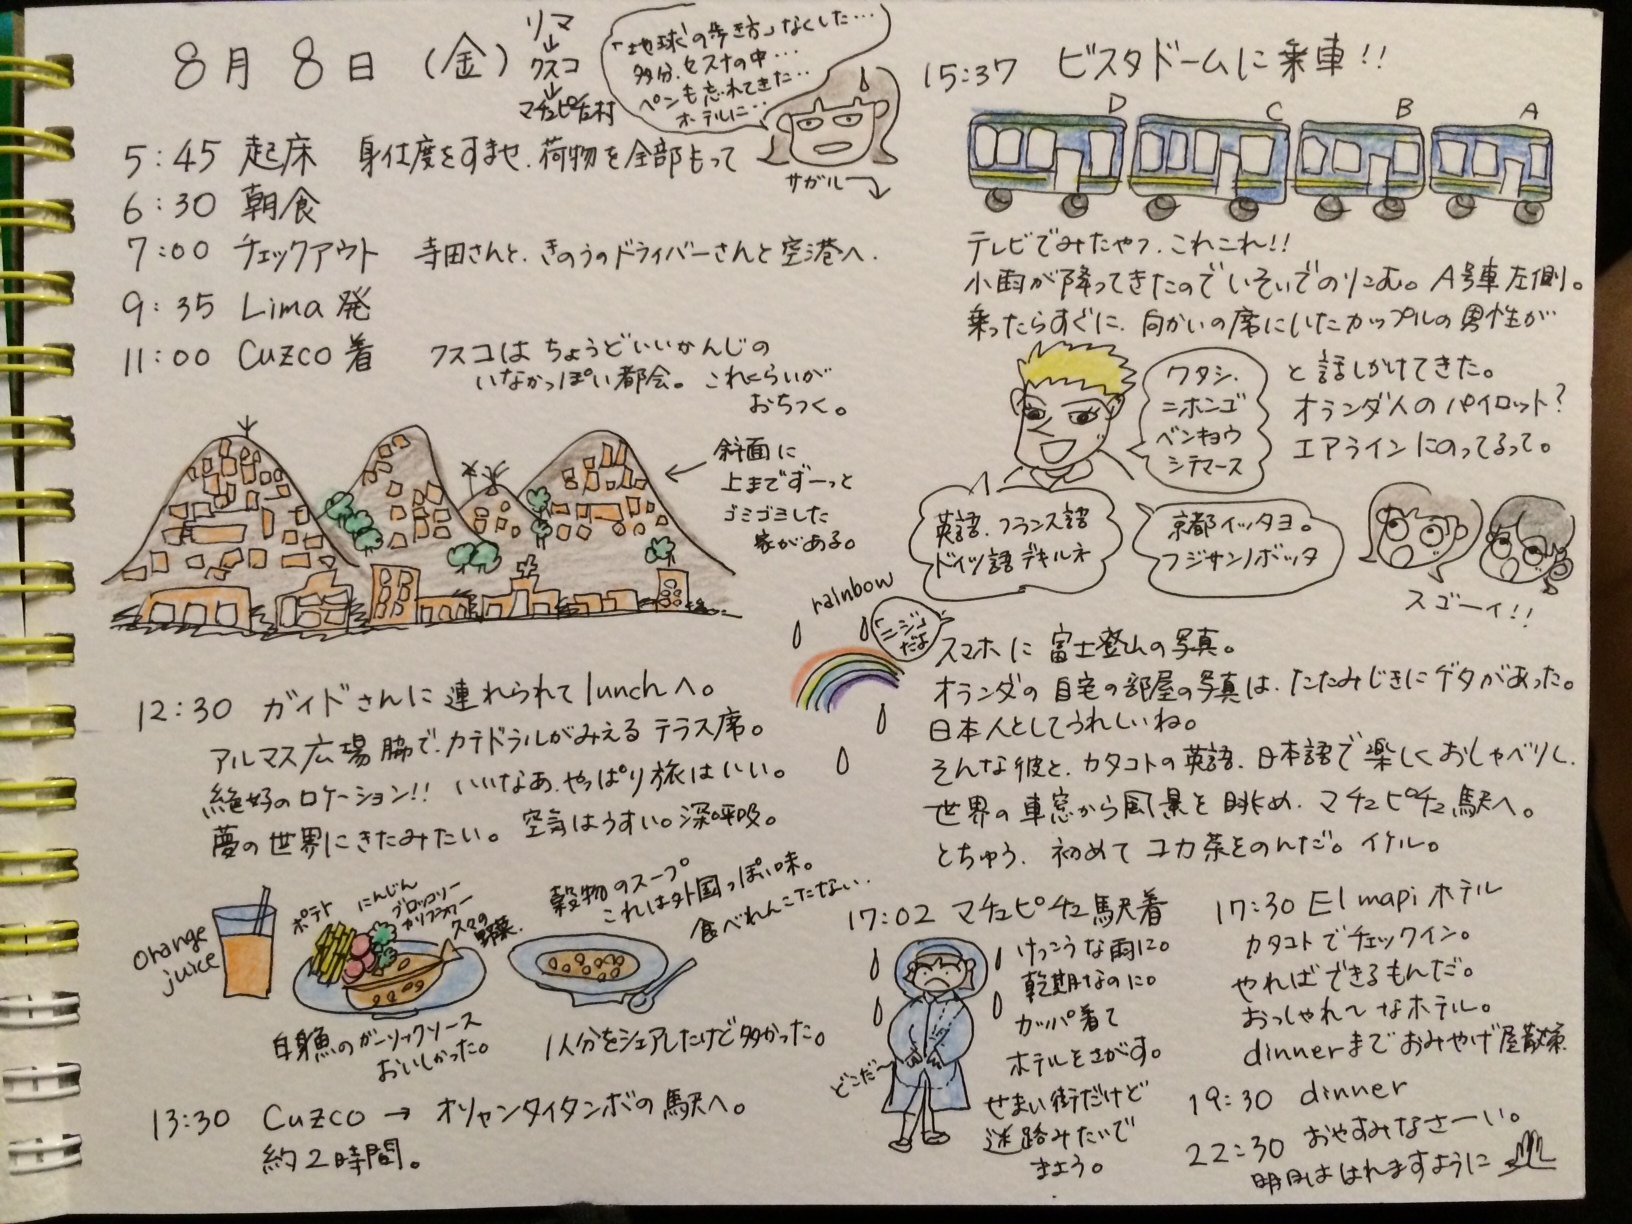 8月8日(金)
リマ
↓
クスコ
↓
マチュピチュ村
「地球の歩き方」なくした…
多分、セスナの中…
ペンも忘れてきた…
ホテルに…
サガル→
5:45 起床 身仕度をすませ、荷物を全部もって
6:30 朝食
7:00 チェックアウト 寺田さんと、きのうのドライバーさんと空港へ.
9:35 Lima 発
11:00 Cuzco 着 クスコは ちょうどいいかんじの
いなかっぽい都会。これくらいが
おちつく。
← 斜面に
上までずーっと
ゴミゴミした
家がある。
12:30 ガイドさんに連れられて lunchへ。
アルマス広場脇で、カテドラルがみえる テラス席。
絶好のロケーション!! いいなあ、やっぱり旅はいい。
夢の世界にきたみたい。空気はうすい。深呼吸。
orange
juice
ポテト
にんじん
ブロッコリー
カリフラワー
久々の
野菜.
白身魚のガーリックソース
おいしかった。
穀物のスープ
これは外国っぽい味。
食べれんこたない.
1人分をシェアしたけど多かった。
13:30 Cuzco → オリャンタイタンボの駅へ。
約2時間。
15:37 ビスタドームに乗車!!
D C B A
テレビでみたやつ、これこれ!!
小雨が降ってきたのでいそいでのりこむ。A号車左側。
乗ったらすぐに、向かいの席にいたカップルの男性が
ワタシ、
ニホンゴ
ベンキョウ
シテマース
と話しかけてきた。
オランダ人のパイロット?
エアラインにのってるって。
英語、フランス語
ドイツ語デキルネ
京都イッタヨ。
フジサンノボッタ
スゴーイ!!
rainbow
「ニジ」
だよ
スマホに 富士登山の写真。
オランダの自宅の部屋の写真は、たたみじきにゲタがあった。
日本人としてうれしいね。
そんな彼と、カタコトの英語、日本語で楽しくおしゃべりし、
世界の車窓から風景を眺め、マチュピチュ駅へ。
とちゅう、初めてコカ茶をのんだ。イケル。
17:02 マチュピチュ駅着
けっこうな雨に。
乾期なのに。
カッパ着て
ホテルをさがす。
せまい街だけど
迷路みたいで
まよう。
どこだ〜
17:30 El mapi ホテル
カタコトでチェックイン。
やればできるもんだ。
おっしゃれ〜なホテル。
dinnerまでおみやげ屋散策
19:30 dinner
22:30 おやすみなさーい。
明日ははれますように